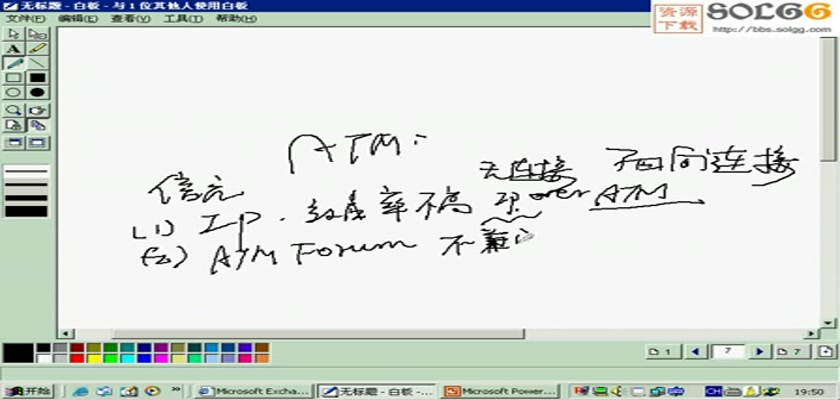 无标题 - 白板 - 与 1 位其他人使用白板
文件(F) 编辑(E) 查看(V) 工具(T) 帮助(H)
资源下载 SOLGG
http://bbs.solgg.com
ATM:
信元 无连接 面向连接
(1) IP. 效率不高 IP over ATM
(2) ATM Forum 不兼
1 7 7
开始 Microsoft Excha... 无标题 - 白板 -... Microsoft Power... CH 19:50